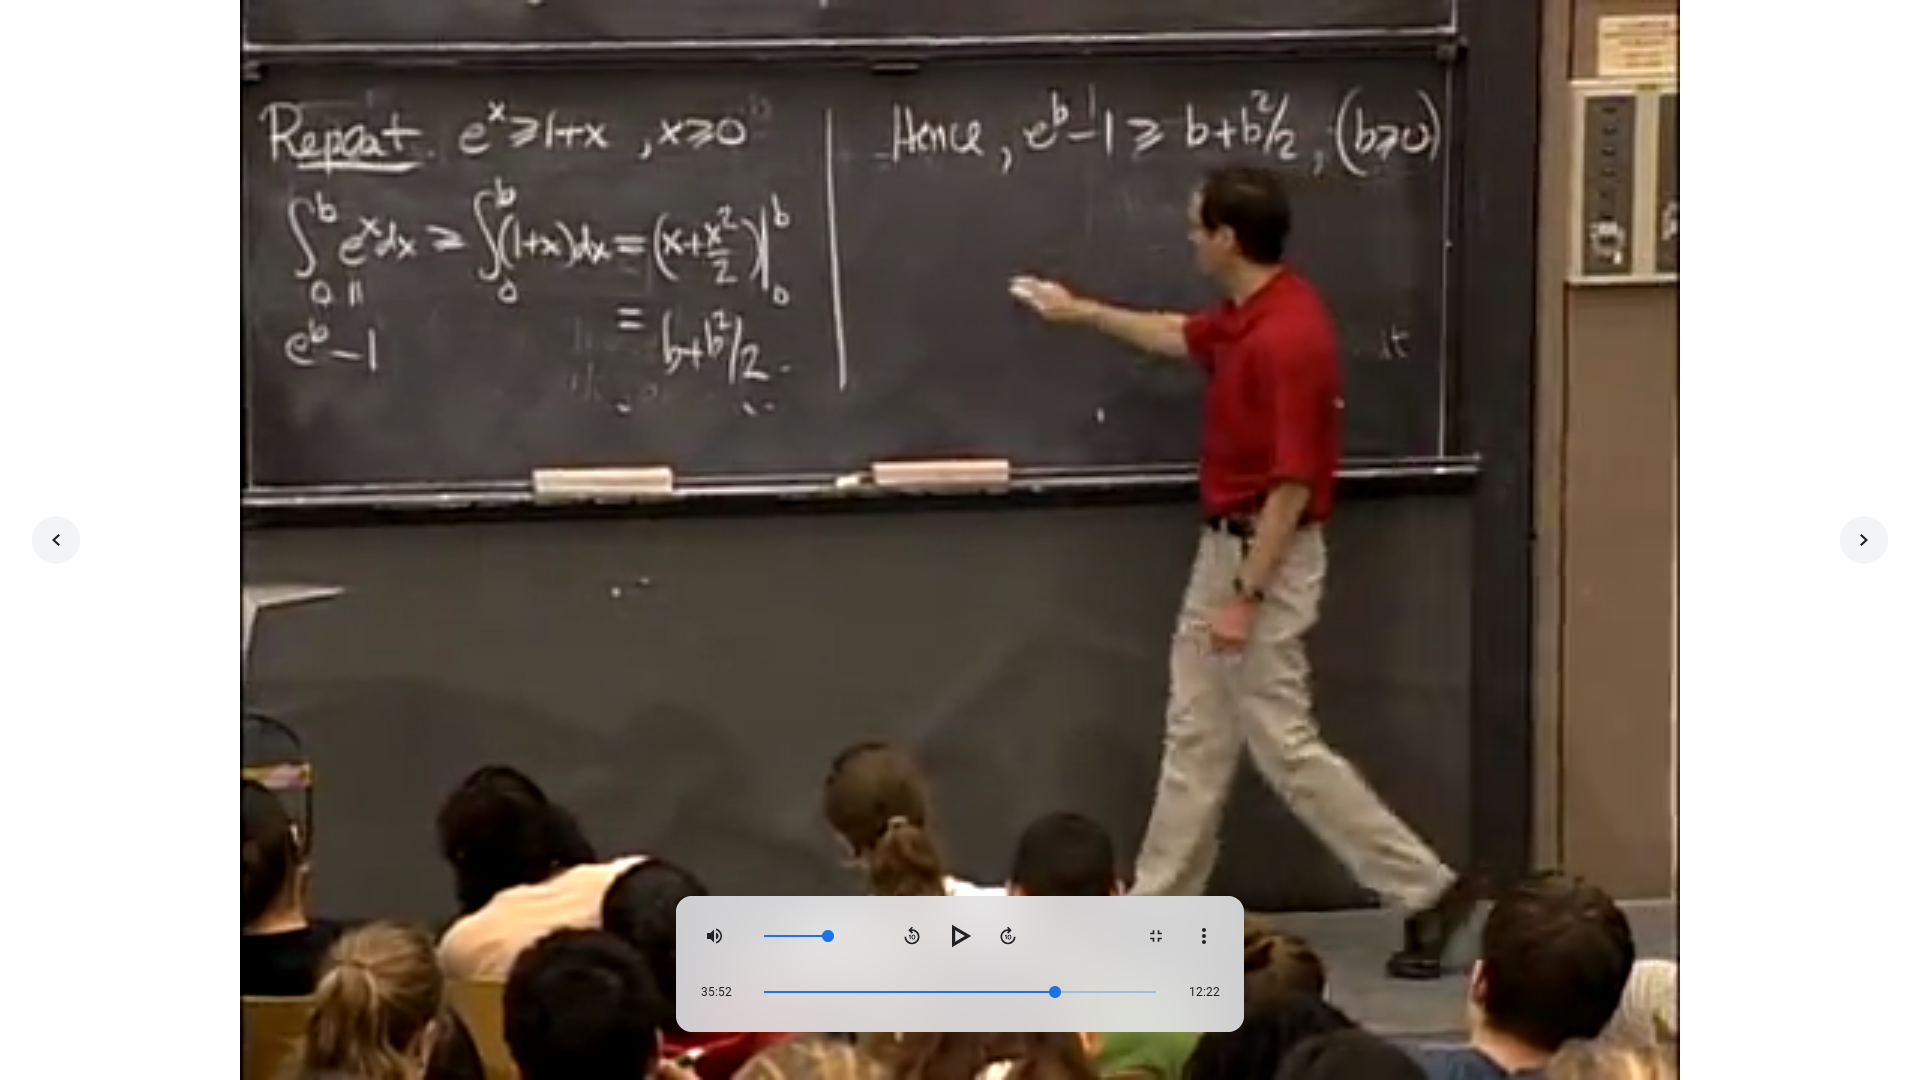 Repeat. e^x ≥ 1+x , x ≥ 0
∫_0^b e^x dx ≥ ∫_0^b (1+x)dx = (x+x^2/2)|_0^b
॥
e^b - 1
= b+b^2/2.
Hence, e^b - 1 ≥ b+b^2/2, (b≥0)
10
10
35:52
12:22